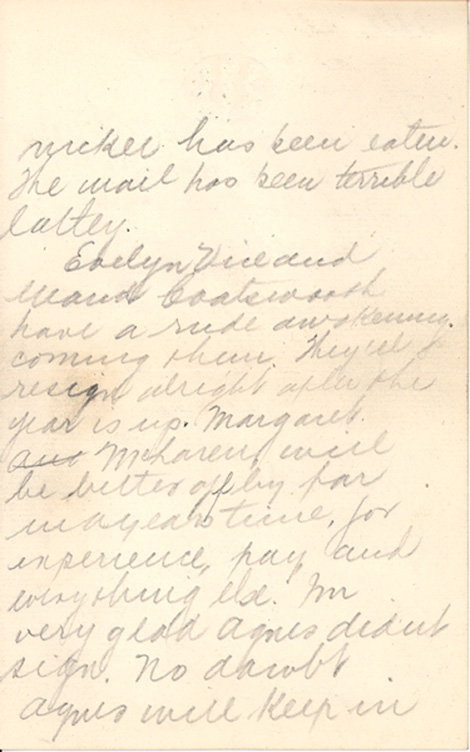 nickel has been eaten.
The mail has been terrible
lattey.
Evelyn Vice and
Coatsworth
have a rude awakening
coming them. They'el
resign alright after the
year is up. Margaret
and McLaren will
be better off by far
in a years time, for
experience, pay and
everything else. Im
very glad Agnes didn't
sign. No dowbt
agnes will keep in